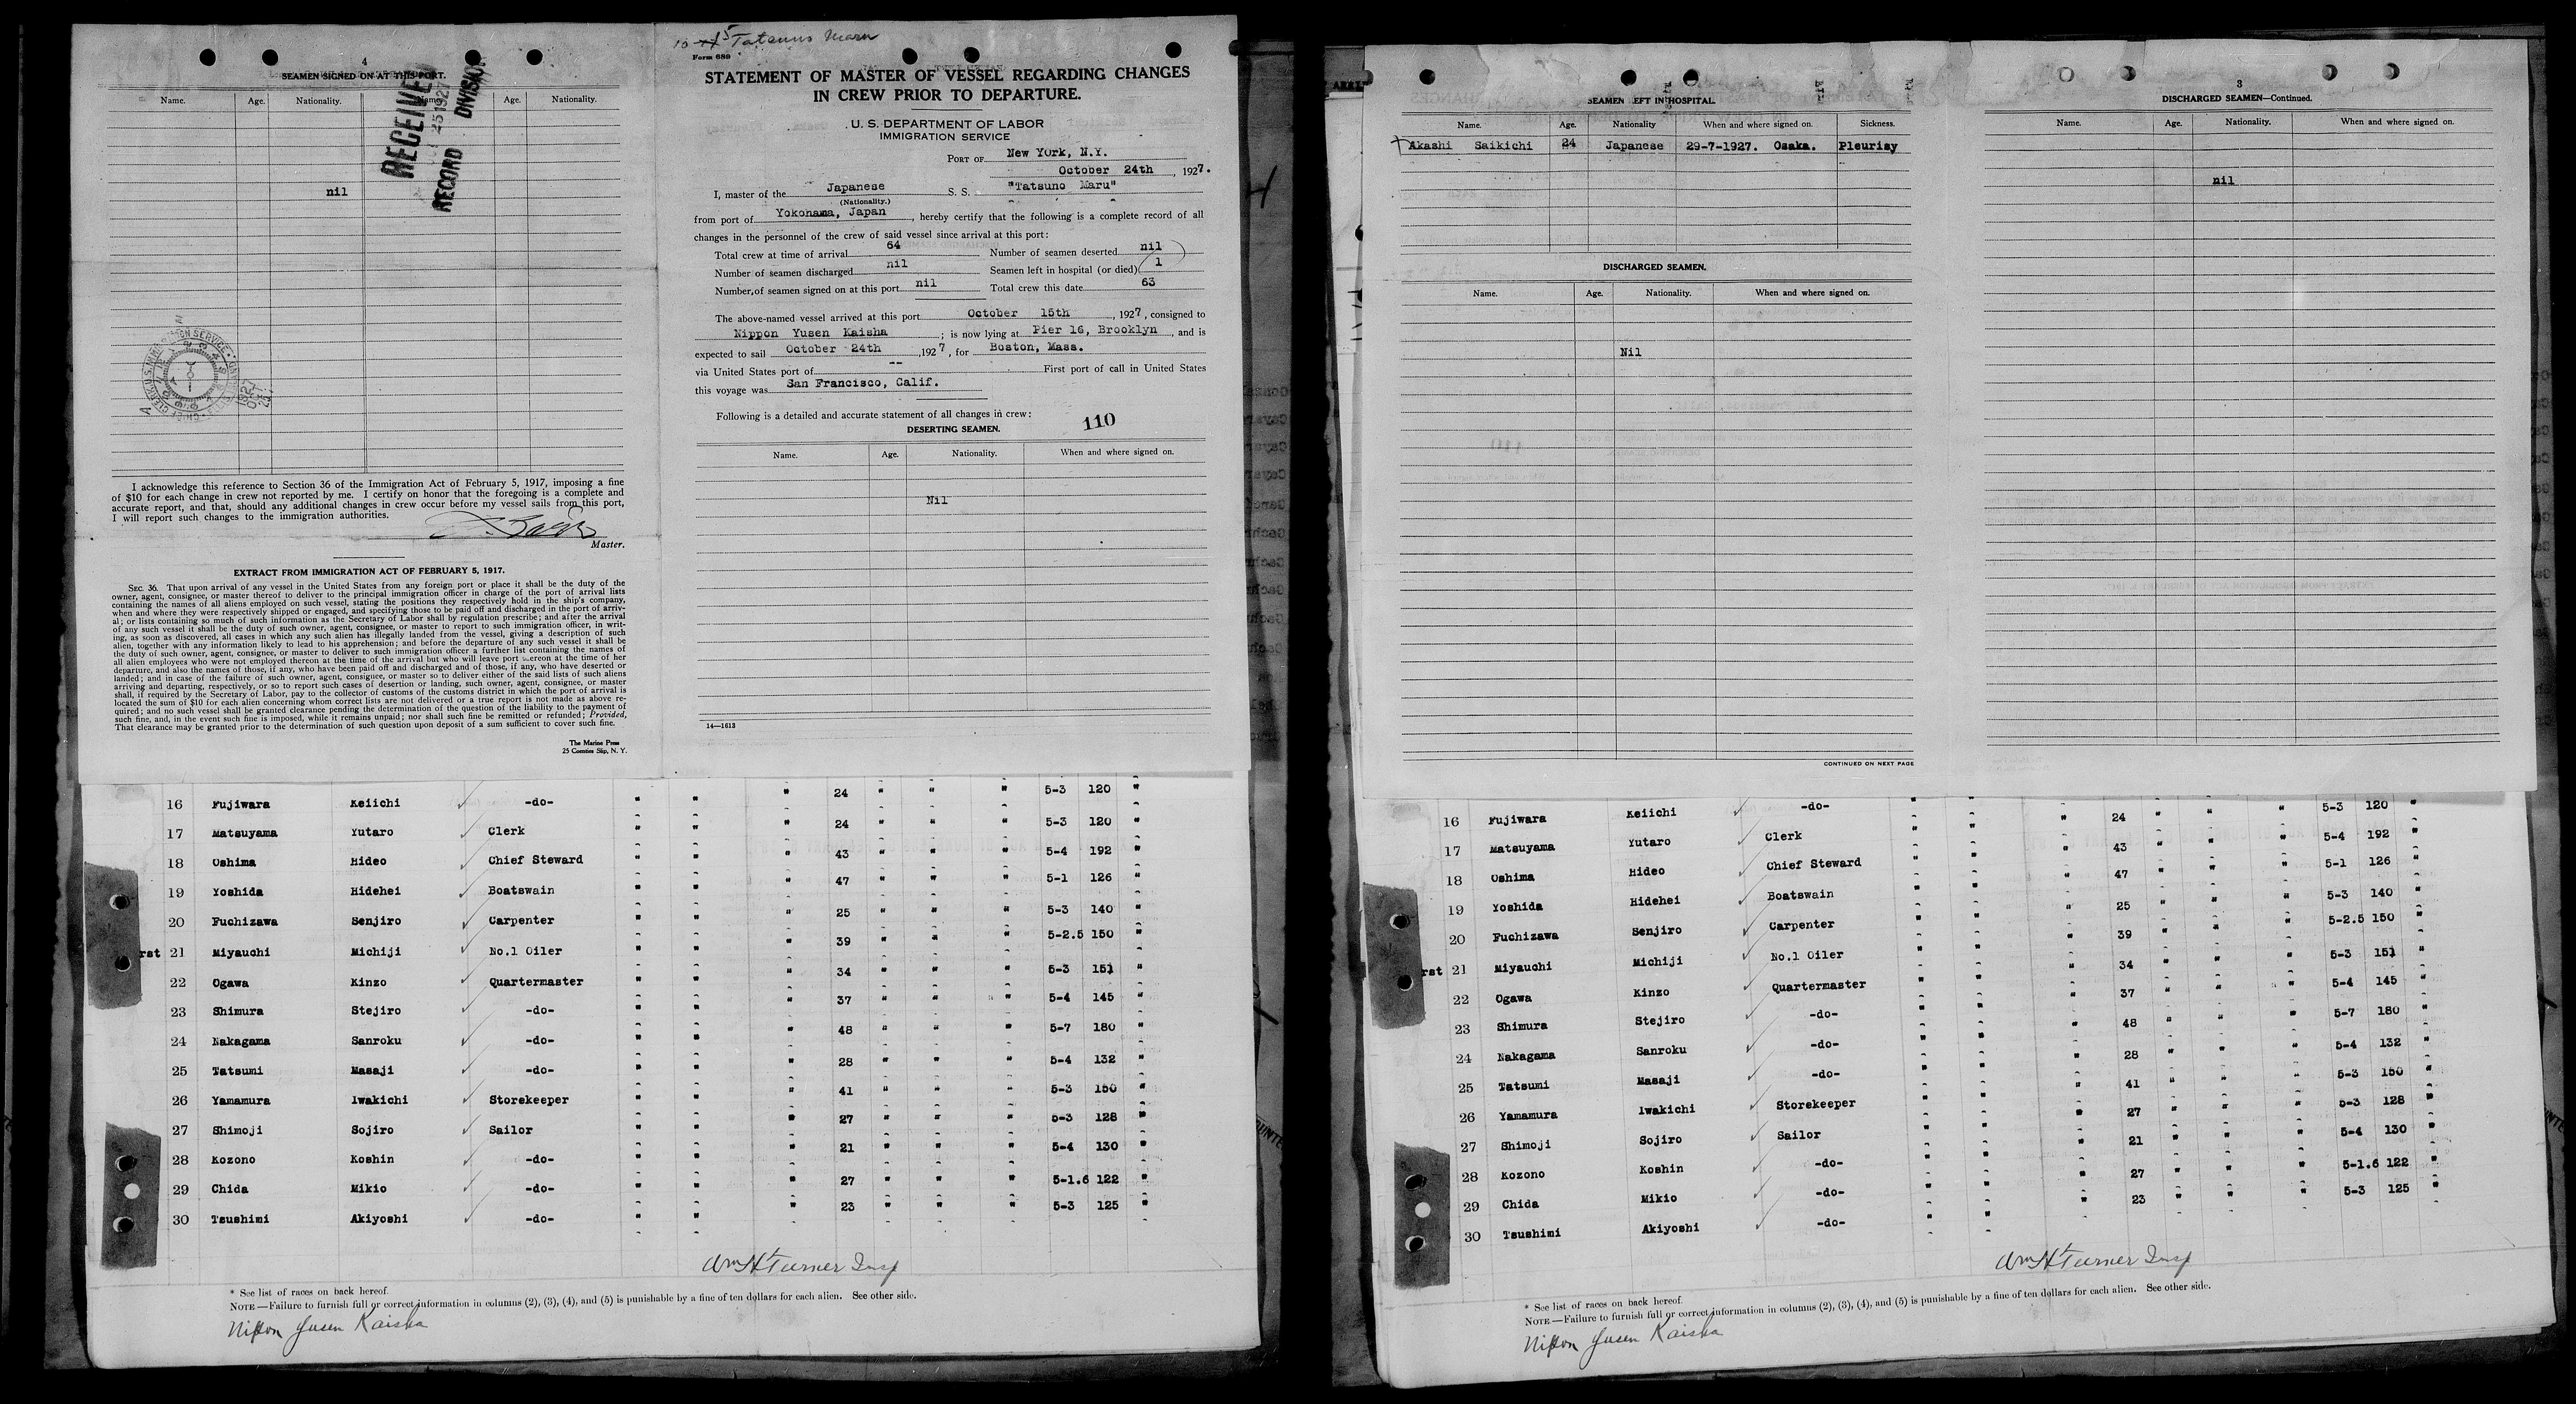 4
SEAMEN SIGNED ON AT THIS PORT.
Name. Age. Nationality. Name. Age. Nationality.
nil
RECEIVED
25 1927
RECORD DIVISION
I acknowledge this reference to Section 36 of the Immigration Act of February 5, 1917, imposing a fine
of $10 for each change in crew not reported by me. I certify on honor that the foregoing is a complete and
accurate report, and that, should any additional changes in crew occur before my vessel sails from this port,
I will report such changes to the immigration authorities.
Master.
EXTRACT FROM IMMIGRATION ACT OF FEBRUARY 5, 1917.
SEC. 36. That upon arrival of any vessel in the United States from any foreign port or place it shall be the duty of the
owner, agent, consignee, or master thereof to deliver to the principal immigration officer in charge of the port of arrival lists
containing the names of all aliens employed on such vessel, stating the positions they respectively hold in the ship's company,
when and where they were respectively shipped or engaged, and specifying those to be paid off and discharged in the port of arriv-
al; or lists containing so much of such information as the Secretary of Labor shall by regulation prescribe; and after the arrival
of any such vessel it shall be the duty of such owner, agent, consignee, or master to report to such immigration officer, in writ-
ing, as soon as discovered, all cases in which any such alien has illegally landed from the vessel, giving a description of such
alien, together with any information likely to lead to his apprehension; and before the departure of any such vessel it shall be
the duty of such owner, agent, consignee, or master to deliver to such immigration officer a further list containing the names of
all alien employees who were not employed thereon at the time of the arrival but who will leave port thereon at the time of her
departure, and also the names of those, if any, who have been paid off and discharged and of those, if any, who have deserted or
landed; and in case of the failure of such owner, agent, consignee, or master so to deliver either of the said lists of such aliens
arriving and departing, respectively, or so to report such cases of desertion or landing, such owner, agent, consignee, or master
shall, if required by the Secretary of Labor, pay to the collector of customs of the customs district in which the port of arrival is
located the sum of $10 for each alien concerning whom correct lists are not delivered or a true report is not made as above re-
quired; and no such vessel shall be granted clearance pending the determination of the question of the liability to the payment of
such fine, and, in the event such fine is imposed, while it remains unpaid; nor shall such fine be remitted or refunded; Provided,
That clearance may be granted prior to the determination of such question upon deposit of a sum sufficient to cover such fine.
The Marine Press
25 Coenties Slip, N. Y.
Tatsuno Maru
Form 689
STATEMENT OF MASTER OF VESSEL REGARDING CHANGES
IN CREW PRIOR TO DEPARTURE.
U. S. DEPARTMENT OF LABOR
IMMIGRATION SERVICE
PORT OF New York, N.Y.
October 24th, 1927.
I, master of the Japanese S. S. "Tatsuno Maru"
(Nationality.)
from port of Yokohama, Japan, hereby certify that the following is a complete record of all
changes in the personnel of the crew of said vessel since arrival at this port:
Total crew at time of arrival 64 Number of seamen deserted nil
Number of seamen discharged nil Seamen left in hospital (or died) 1
Number of seamen signed on at this port nil Total crew this date 63
The above-named vessel arrived at this port October 15th, 1927, consigned to
Nippon Yusen Kaisha; is now lying at Pier 16, Brooklyn, and is
expected to sail October 24th, 1927, for Boston, Mass.
via United States port of -- First port of call in United States
this voyage was San Francisco, Calif.
Following is a detailed and accurate statement of all changes in crew:
110
DESERTING SEAMEN.
Name. Age. Nationality. When and where signed on.
Nil
14—1613
16 Fujiwara Keiichi -do- " " " 24 " " " 5-3 120 "
17 Matsuyama Yutaro Clerk " " " 24 " " " 5-3 120 "
18 Oshima Hideo Chief Steward " " " 43 " " " 5-4 192 "
19 Yoshida Hidehei Boatswain " " " 47 " " " 5-1 126 "
20 Fuchizawa Senjiro Carpenter " " " 25 " " " 5-3 140 "
rst 21 Miyauchi Michiji No.1 Oiler " " " 39 " " " 5-2.5 150 "
22 Ogawa Kinzo Quartermaster " " " 34 " " " 5-3 151 "
23 Shimura Stejiro -do- " " " 37 " " " 5-4 145 "
24 Nakagama Sanroku -do- " " " 48 " " " 5-7 180 "
25 Tatsumi Masaji -do- " " " 28 " " " 5-4 132 "
26 Yamamura Iwakichi Storekeeper " " " 41 " " " 5-3 150 "
27 Shimoji Sojiro Sailor " " " 27 " " " 5-3 128 "
28 Kozono Koshin -do- " " " 21 " " " 5-4 130 "
29 Chida Mikio -do- " " " 27 " " " 5-1.6 122 "
30 Tsushimi Akiyoshi -do- " " " 23 " " " 5-3 125 "
Wm H Turner Insp
* See list of races on back hereof.
NOTE.—Failure to furnish full or correct information in columns (2), (3), (4), and (5) is punishable by a fine of ten dollars for each alien. See other side.
Nippon Yusen Kaisha
SEAMEN LEFT IN HOSPITAL.
Name. Age. Nationality When and where signed on. Sickness.
Akashi Saikichi 24 Japanese 29-7-1927. Osaka. Pleurisy
DISCHARGED SEAMEN.
Name. Age. Nationality. When and where signed on.
Nil
CONTINUED ON NEXT PAGE
3
DISCHARGED SEAMEN—Continued.
Name. Age. Nationality. When and where signed on.
nil
16 Fujiwara Keiichi -do- " " " 24 " " " 5-3 120 "
17 Matsuyama Yutaro Clerk " " " 43 " " " 5-4 192 "
18 Oshima Hideo Chief Steward " " " 47 " " " 5-1 126 "
19 Yoshida Hidehei Boatswain " " " 25 " " " 5-3 140 "
20 Fuchizawa Senjiro Carpenter " " " 39 " " " 5-2.5 150 "
rst 21 Miyauchi Michiji No.1 Oiler " " " 34 " " " 5-3 151 "
22 Ogawa Kinzo Quartermaster " " " 37 " " " 5-4 145 "
23 Shimura Stejiro -do- " " " 48 " " " 5-7 180 "
24 Nakagama Sanroku -do- " " " 28 " " " 5-4 132 "
25 Tatsumi Masaji -do- " " " 41 " " " 5-3 150 "
26 Yamamura Iwakichi Storekeeper " " " 27 " " " 5-3 128 "
27 Shimoji Sojiro Sailor " " " 21 " " " 5-4 130 "
28 Kozono Koshin -do- " " " 27 " " " 5-1.6 122 "
29 Chida Mikio -do- " " " 23 " " " 5-3 125 "
30 Tsushimi Akiyoshi -do- " "
Wm H Turner Insp
* See list of races on back hereof.
NOTE.—Failure to furnish full or correct information in columns (2), (3), (4), and (5) is punishable by a fine of ten dollars for each alien. See other side.
Nippon Yusen Kaisha